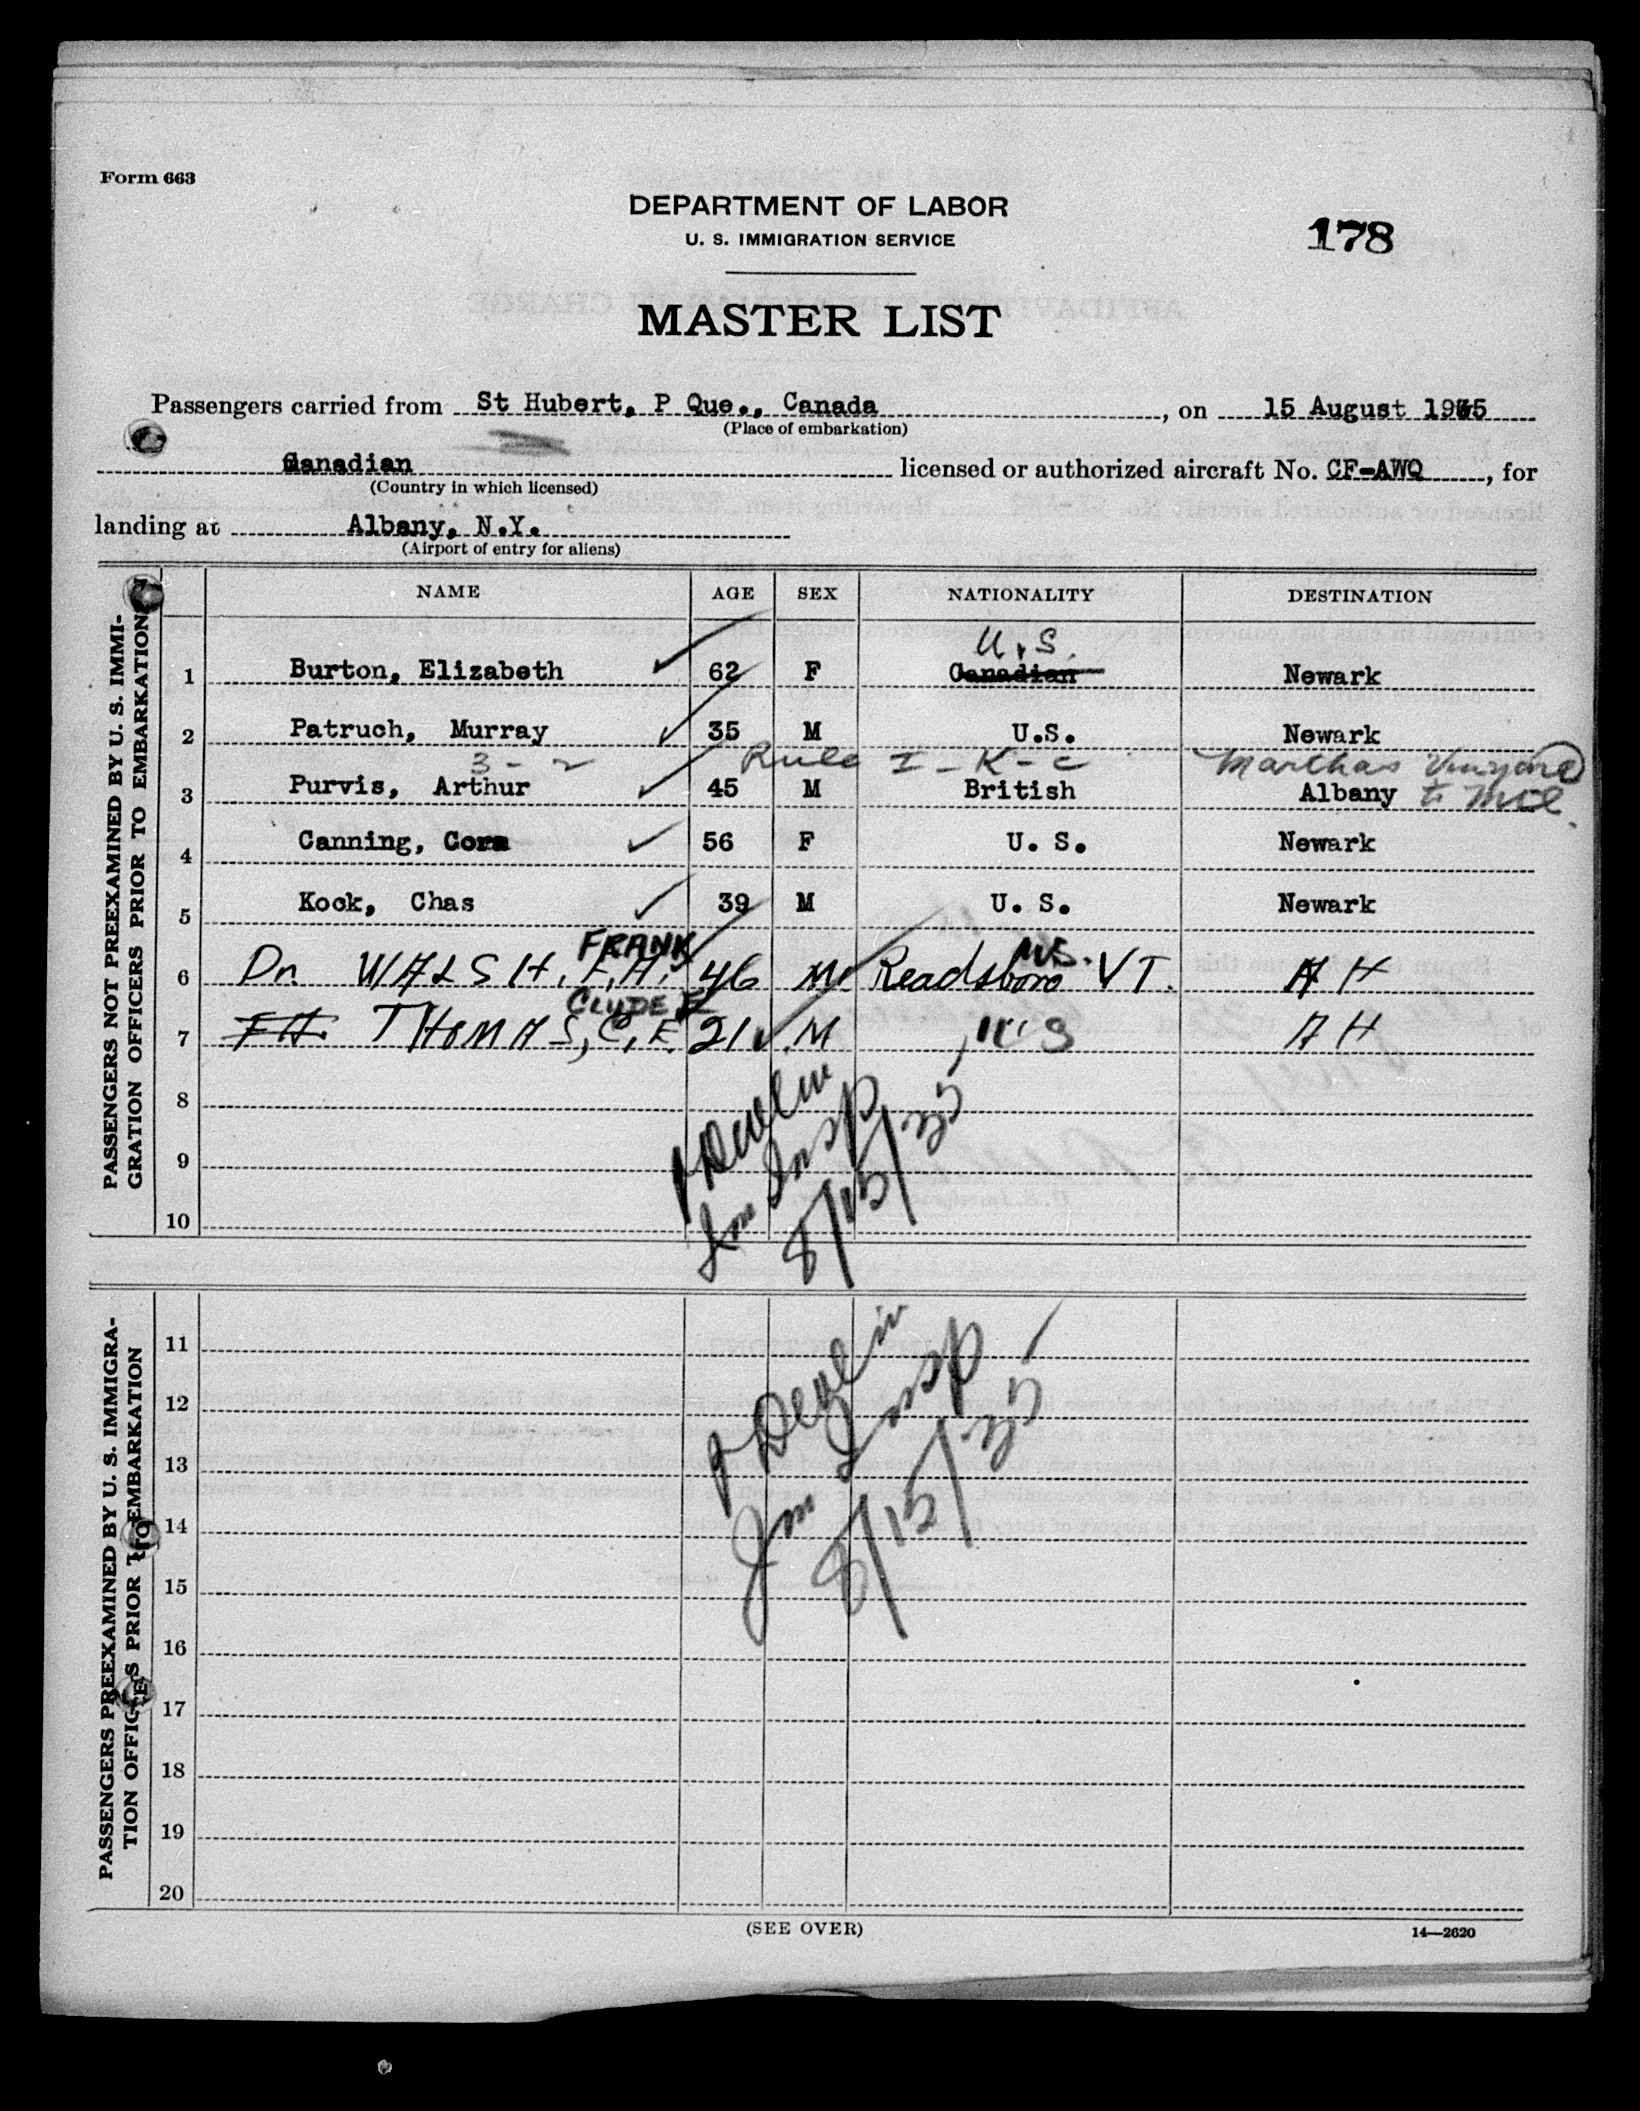 Form 663
DEPARTMENT OF LABOR
U. S. IMMIGRATION SERVICE
178
MASTER LIST
Passengers carried from St Hubert, P Que., Canada, on 15 August 1935
(Place of embarkation)
Canadian licensed or authorized aircraft No. CF-AWQ, for
(Country in which licensed)
landing at Albany, N.Y.
(Airport of entry for aliens)
PASSENGERS NOT PREEXAMINED BY U. S. IMMI-
GRATION OFFICERS PRIOR TO EMBARKATION
NAME AGE SEX NATIONALITY DESTINATION
U.S.
1 Burton, Elizabeth 62 F Canadian Newark
2 Patruch, Murray 35 M U.S. Newark
3 - 2 Rule I - K - c Marthas Vineyard
3 Purvis, Arthur 45 M British Albany to Mtl.
4 Canning, Cora 56 F U. S. Newark
5 Kock, Chas 39 M U. S. Newark
FRANK U.S.
6 Dr. WALSH, F, A, 46 M. Readsboro VT. A H
CLYDE E
7 F.H. THOMAS, C, E. 21 M U S A H
8
9
10
J Devlin
Im Insp
8/15/35
PASSENGERS PREEXAMINED BY U. S. IMMIGRA-
TION OFFICERS PRIOR TO EMBARKATION
11
12
13
14
15
16
17
18
19
20
J Devlin
Im Insp
8/15/35
(SEE OVER)
14—2620